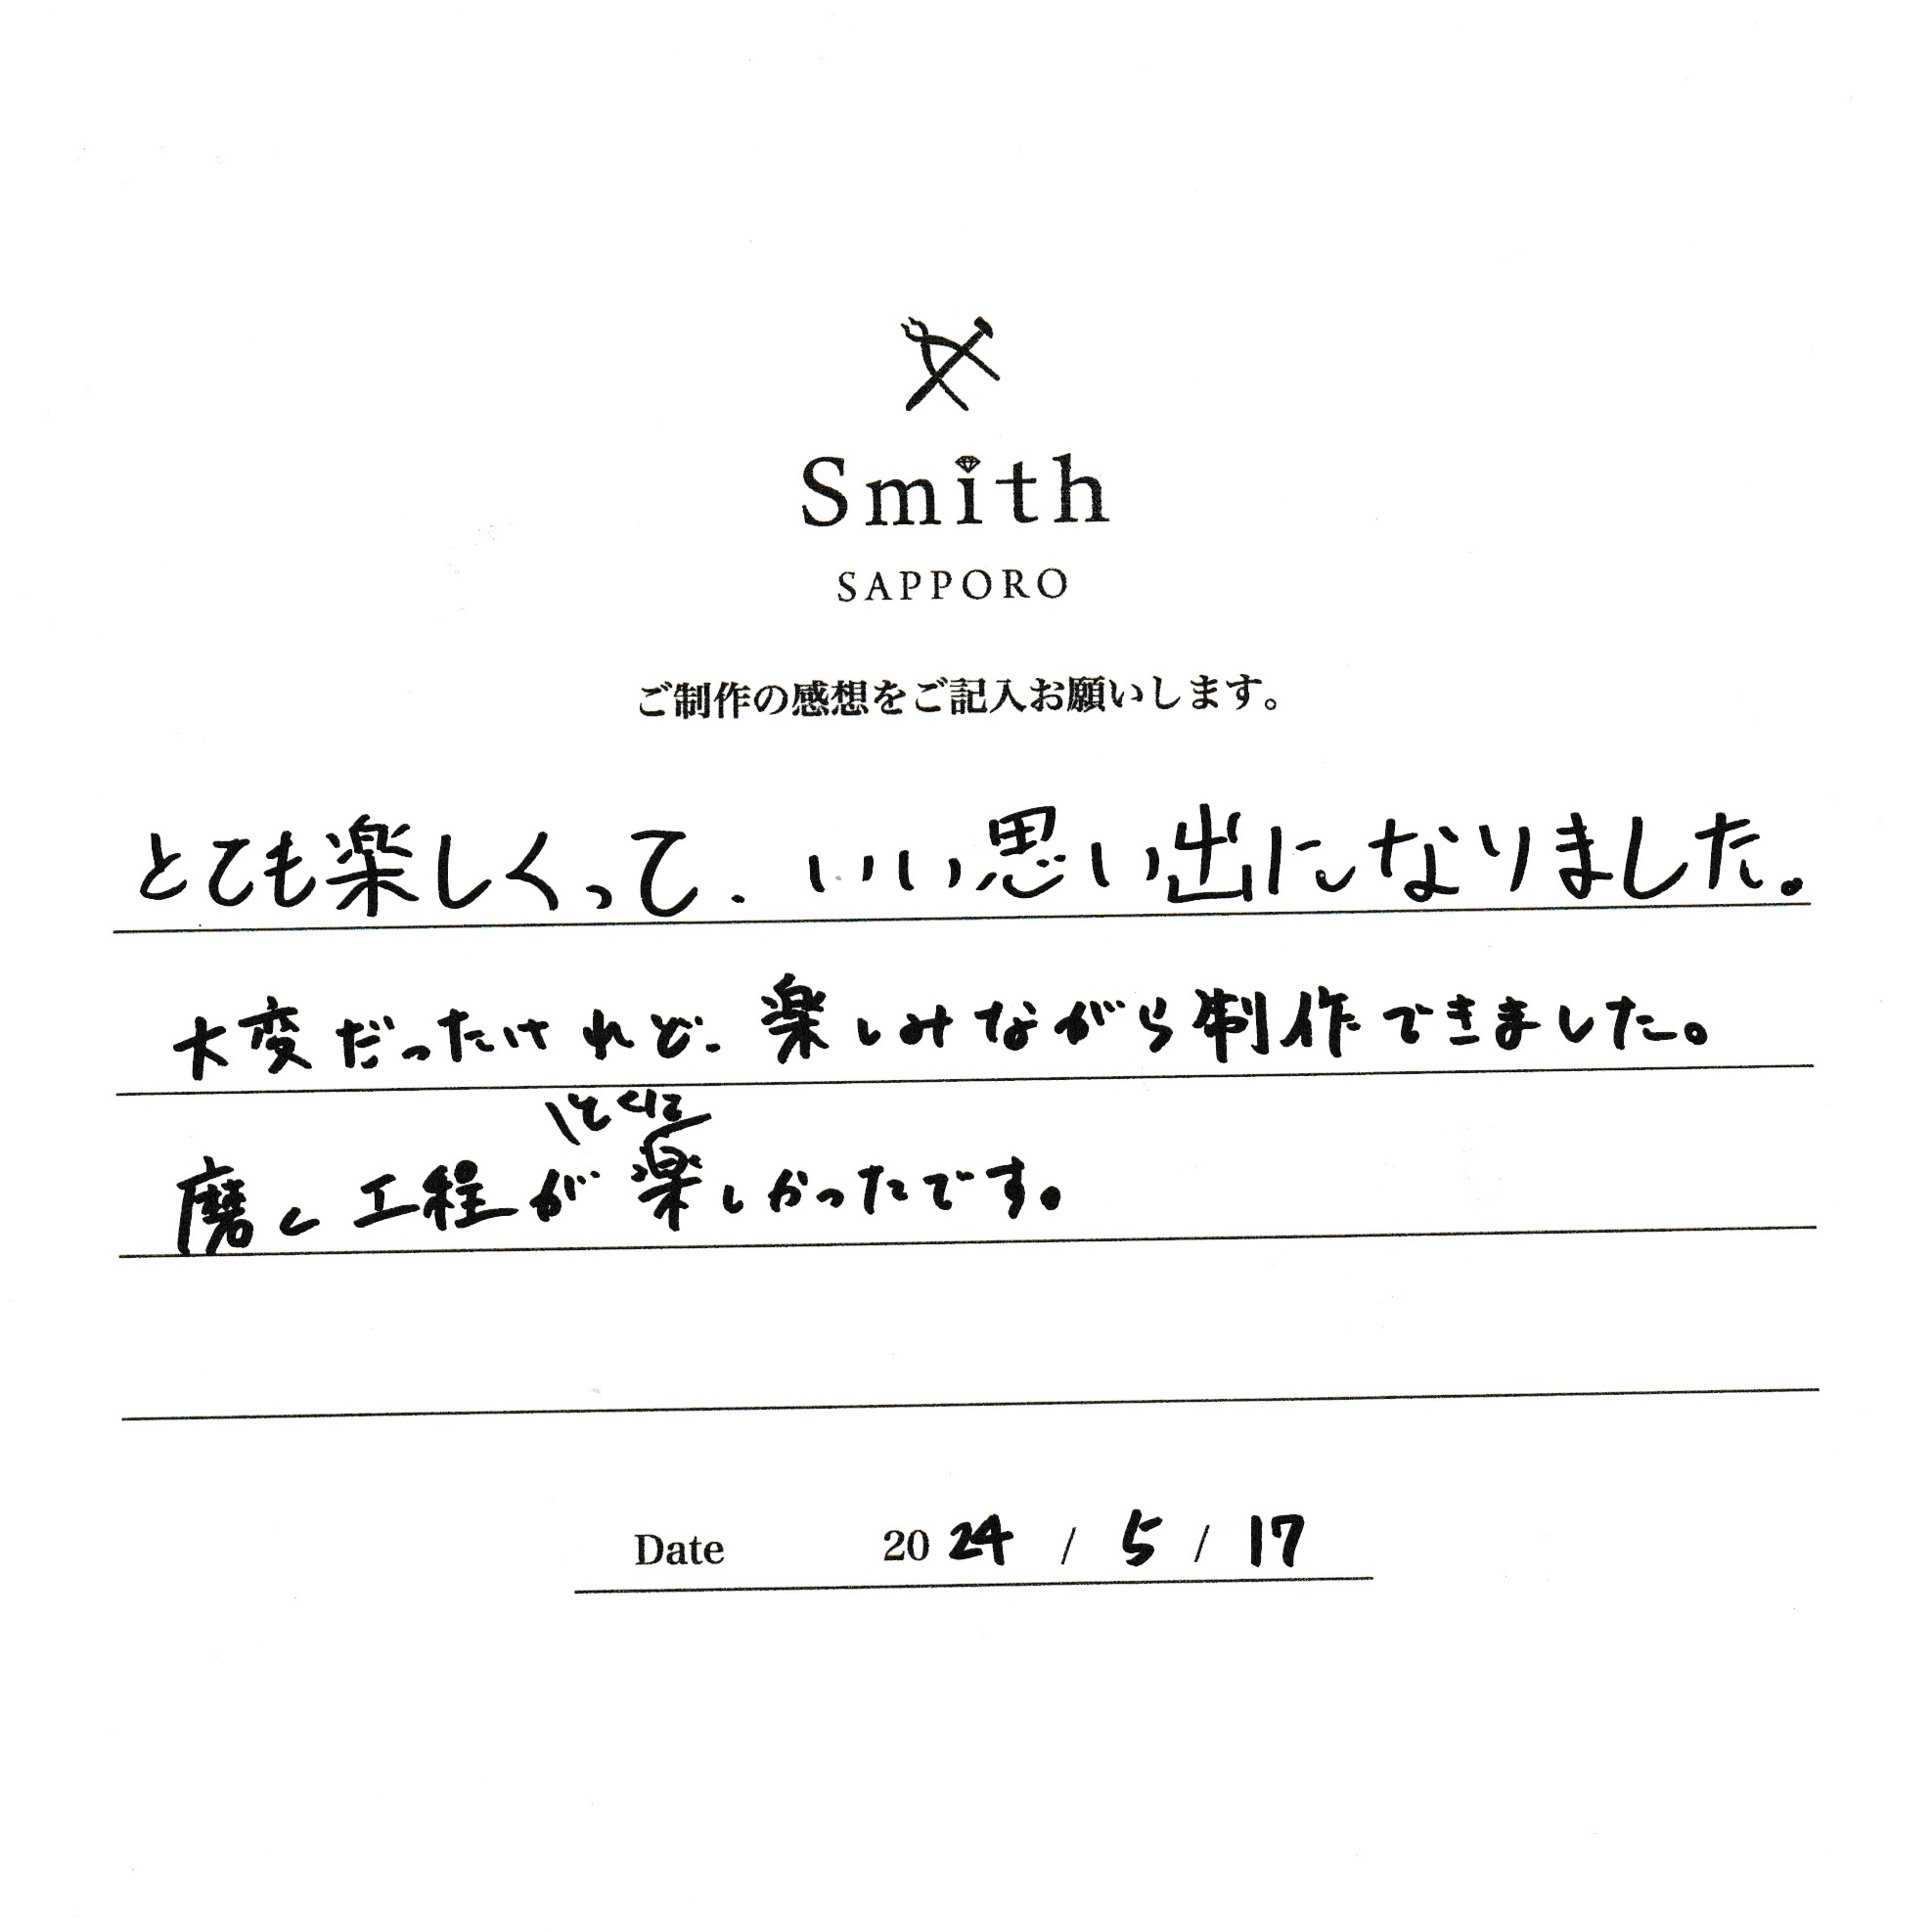 Smith
SAPPORO
ご制作の感想をご記入お願いします。
とても楽しくって、いい思い出になりました。
大変だったけれど、楽しみながら制作できました。
とくに
磨く工程が楽しかったです。
Date 2024 / 5 / 17